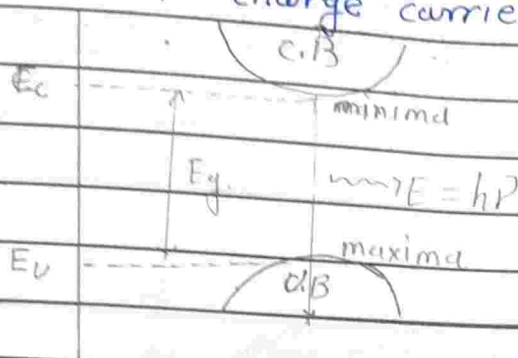 charge carrie
C.B
Ec
minima
Eg.
E = hν
maxima
Ev
V.B